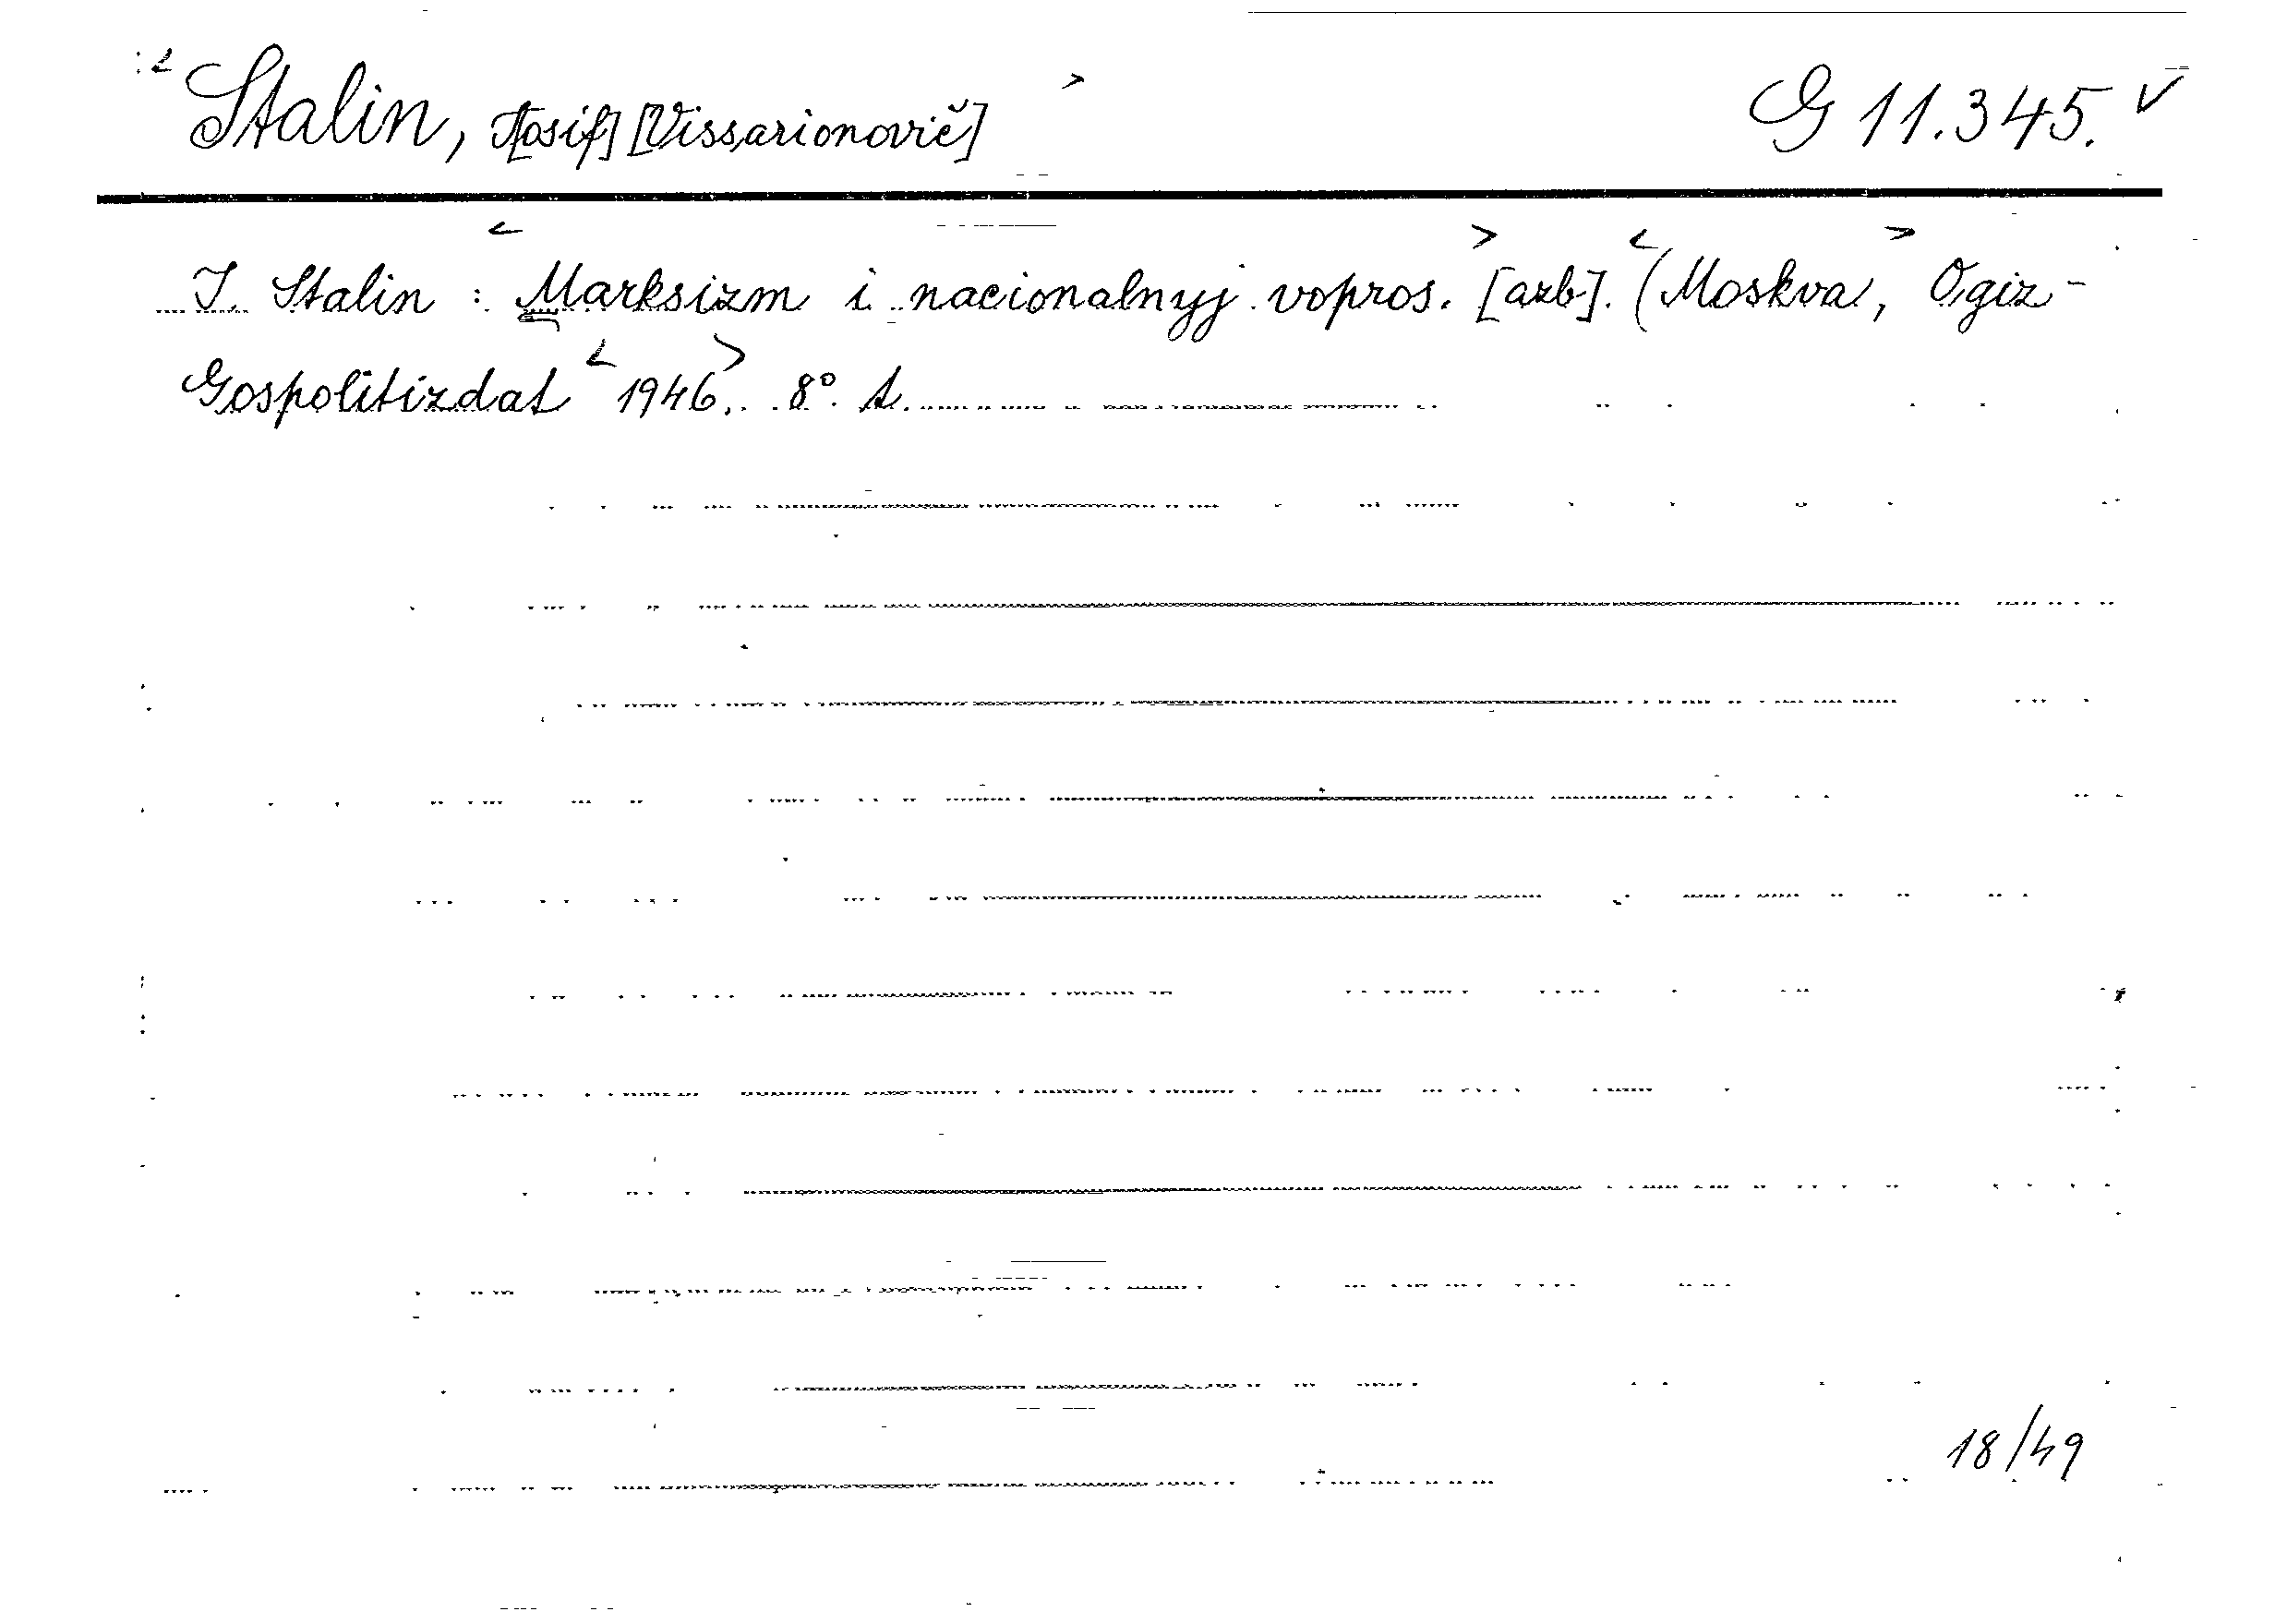 < Stalin, I[osif] [Vissarionovič] > G 11.345. √
I. Stalin : < Marksizm i nacionalnyj vopros. > [azb]. < (Moskva, > Ogiz-
Gospolitizdat < 1946. > 8°. A.
18/49